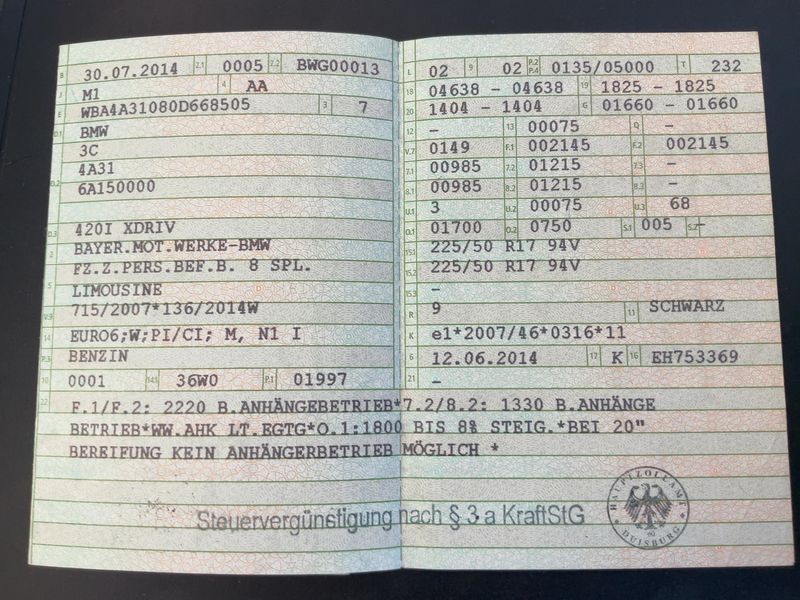 B 30.07.2014 2.1 0005 2.2 BWG00013
J M1 4 AA
E WBA4A31080D668505 3 7
D.1 BMW
3C
4A31
D.2 6A150000
D.3 420I XDRIV
2 BAYER.MOT.WERKE-BMW
FZ.Z.PERS.BEF.B. 8 SPL.
5 LIMOUSINE
V.9 715/2007*136/2014W
14 EURO6;W;PI/CI; M, N1 I
P.3 BENZIN
10 0001 14.1 36W0 P.1 01997
L 02 9 02 P.2 P.4 0135/05000 T 232
18 04638 - 04638 19 1825 - 1825
20 1404 - 1404 G 01660 - 01660
12 - 13 00075 Q -
V.7 0149 F.1 002145 F.2 002145
7.1 00985 7.2 01215 7.3 -
8.1 00985 8.2 01215 8.3 -
U.1 3 U.2 00075 U.3 68
O.1 01700 O.2 0750 S.1 005 S.2 -
15.1 225/50 R17 94V
15.2 225/50 R17 94V
15.3 -
R 9 11 SCHWARZ
K e1*2007/46*0316*11
6 12.06.2014 17 K 16 EH753369
21 -
22 F.1/F.2: 2220 B.ANHÄNGEBETRIEB*7.2/8.2: 1330 B.ANHÄNGE
BETRIEB*WW.AHK LT.EGTG*O.1:1800 BIS 8% STEIG.*BEI 20"
BEREIFUNG KEIN ANHÄNGERBETRIEB MÖGLICH *
Steuervergünstigung nach § 3 a KraftStG
HAUPTZOLLAMT
DUISBURG